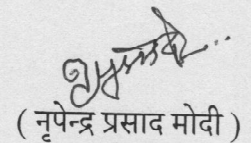 ( नृपेन्द्र प्रसाद मोदी )